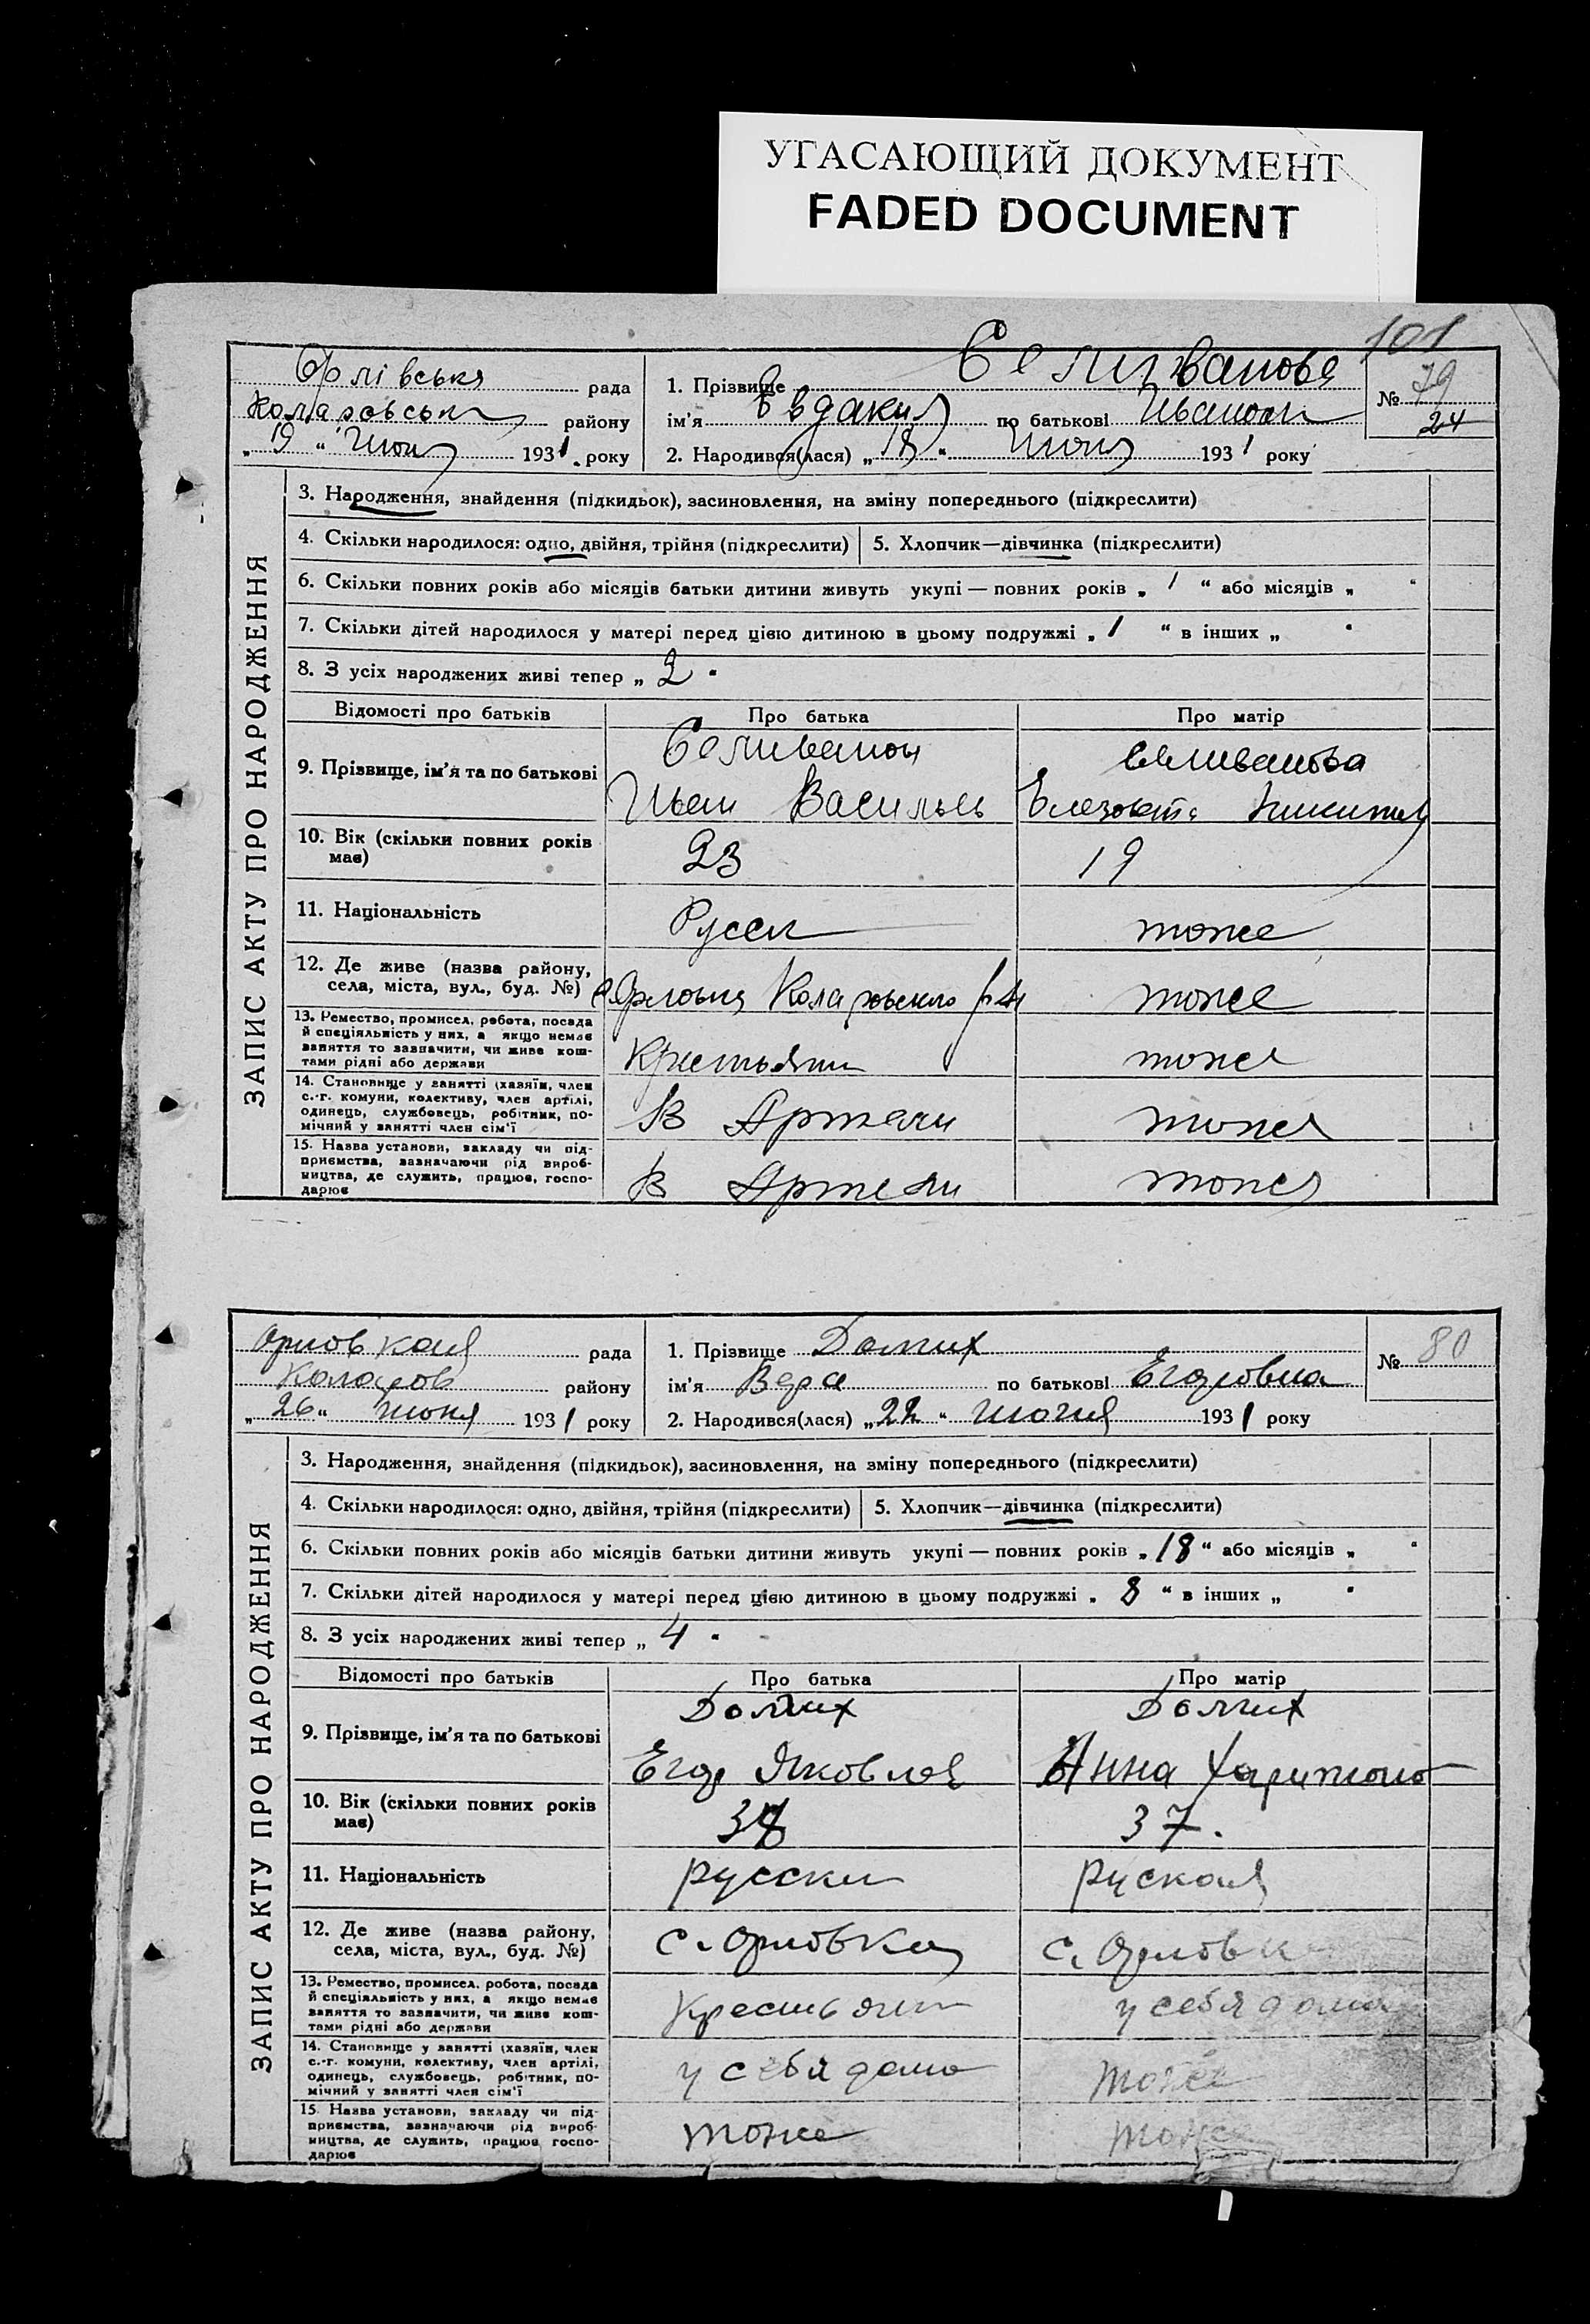 УГАСАЮЩИЙ ДОКУМЕНТ
FADED DOCUMENT
101
Орлівська рада
Коларовськ району
„19“ Июня 1931 року
1. Прізвище Селиванова
ім’я Евдакия по батькові Ивановн
2. Народився(лася) „18“ Июня 1931 року
№ 79
24
ЗАПИС АКТУ ПРО НАРОДЖЕННЯ
3. Народження, знайдення (підкидьок), засиновлення, на зміну попереднього (підкреслити)
4. Скільки народилося: одно, двійня, трійня (підкреслити) 5. Хлопчик—дівчинка (підкреслити)
6. Скільки повних років або місяців батьки дитини живуть укупі — повних років „ 1 “ або місяців „ “
7. Скільки дітей народилося у матері перед цією дитиною в цьому подружжі „ 1 “ в інших „ “
8. З усіх народжених живі тепер „ 2 “
Відомості про батьків Про батька Про матір
9. Прізвище, ім’я та по батькові
Селиванов Селиванова
Иван Василь Никити
10. Вік (скільки повних років має) 23 19
11. Національність Русск тоже
12. Де живе (назва району, села, міста, вул., буд. №) с. Орловка Коларовского р-н тоже
13. Ремество, промисел, робота, посада й спеціяльність у них, а якщо немає заняття то зазначити, чи живе коштами рідні або держави Крестьянин тоже
14. Становище у занятті (хазяїн, член с.-г. комуни, колективу, член артілі, одинець, службовець, робітник, помічний у занятті член сім’ї В Артели тоже
15. Назва установи, закладу чи підприємства, зазначаючи рід виробництва, де служить, працює, господарює В Артели тоже
Орловкая рада
Коларов району
„26“ июня 1931 року
1. Прізвище Долгих
ім’я Вера по батькові Егоровна
2. Народився(лася) „22“ июня 1931 року
№ 80
ЗАПИС АКТУ ПРО НАРОДЖЕННЯ
3. Народження, знайдення (підкидьок), засиновлення, на зміну попереднього (підкреслити)
4. Скільки народилося: одно, двійня, трійня (підкреслити) 5. Хлопчик—дівчинка (підкреслити)
6. Скільки повних років або місяців батьки дитини живуть укупі — повних років „ 18 “ або місяців „ “
7. Скільки дітей народилося у матері перед цією дитиною в цьому подружжі „ 8 “ в інших „ “
8. З усіх народжених живі тепер „ 4 “
Відомості про батьків Про батька Про матір
9. Прізвище, ім’я та по батькові
Долгих Долгих
Егор Яковлев Анна Харитоно
10. Вік (скільки повних років має) 37.
11. Національність русски руская
12. Де живе (назва району, села, міста, вул., буд. №) с. Орловка с. Орловк
13. Ремество, промисел, робота, посада й спеціяльність у них, а якщо немає заняття то зазначити, чи живе коштами рідні або держави Крестьянин у себя дома
14. Становище у занятті (хазяїн, член с.-г. комуни, колективу, член артілі, одинець, службовець, робітник, помічний у занятті член сім’ї у себя дома тоже
15. Назва установи, закладу чи підприємства, зазначаючи рід виробництва, де служить, працює, господарює тоже тоже